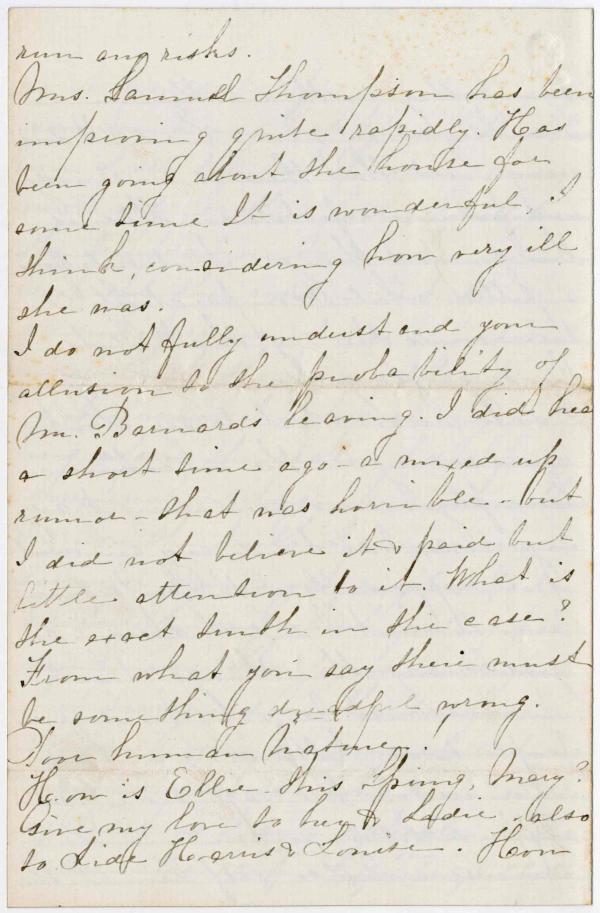 run any risks.
Mrs. Samuel Thompson has been
improving quite rapidly. Has
been going about the house for
some time It is wonderful, I
think, considering how very ill
she was.
I do not fully understand your
allusion to the probability of
Mr. Barnards leaving. I did hea
a short time ago - a mixed up
rumor - that was horrible - but
I did not believe it & paid but
little attention to it. What is
the exact truth in the case?
From what you say there must
be something dreadful wrong.
Poor human nature!
How is Ellie this Spring, Mary?
Give my love to her & Sadie - also
to Lide Harris & Louise. How